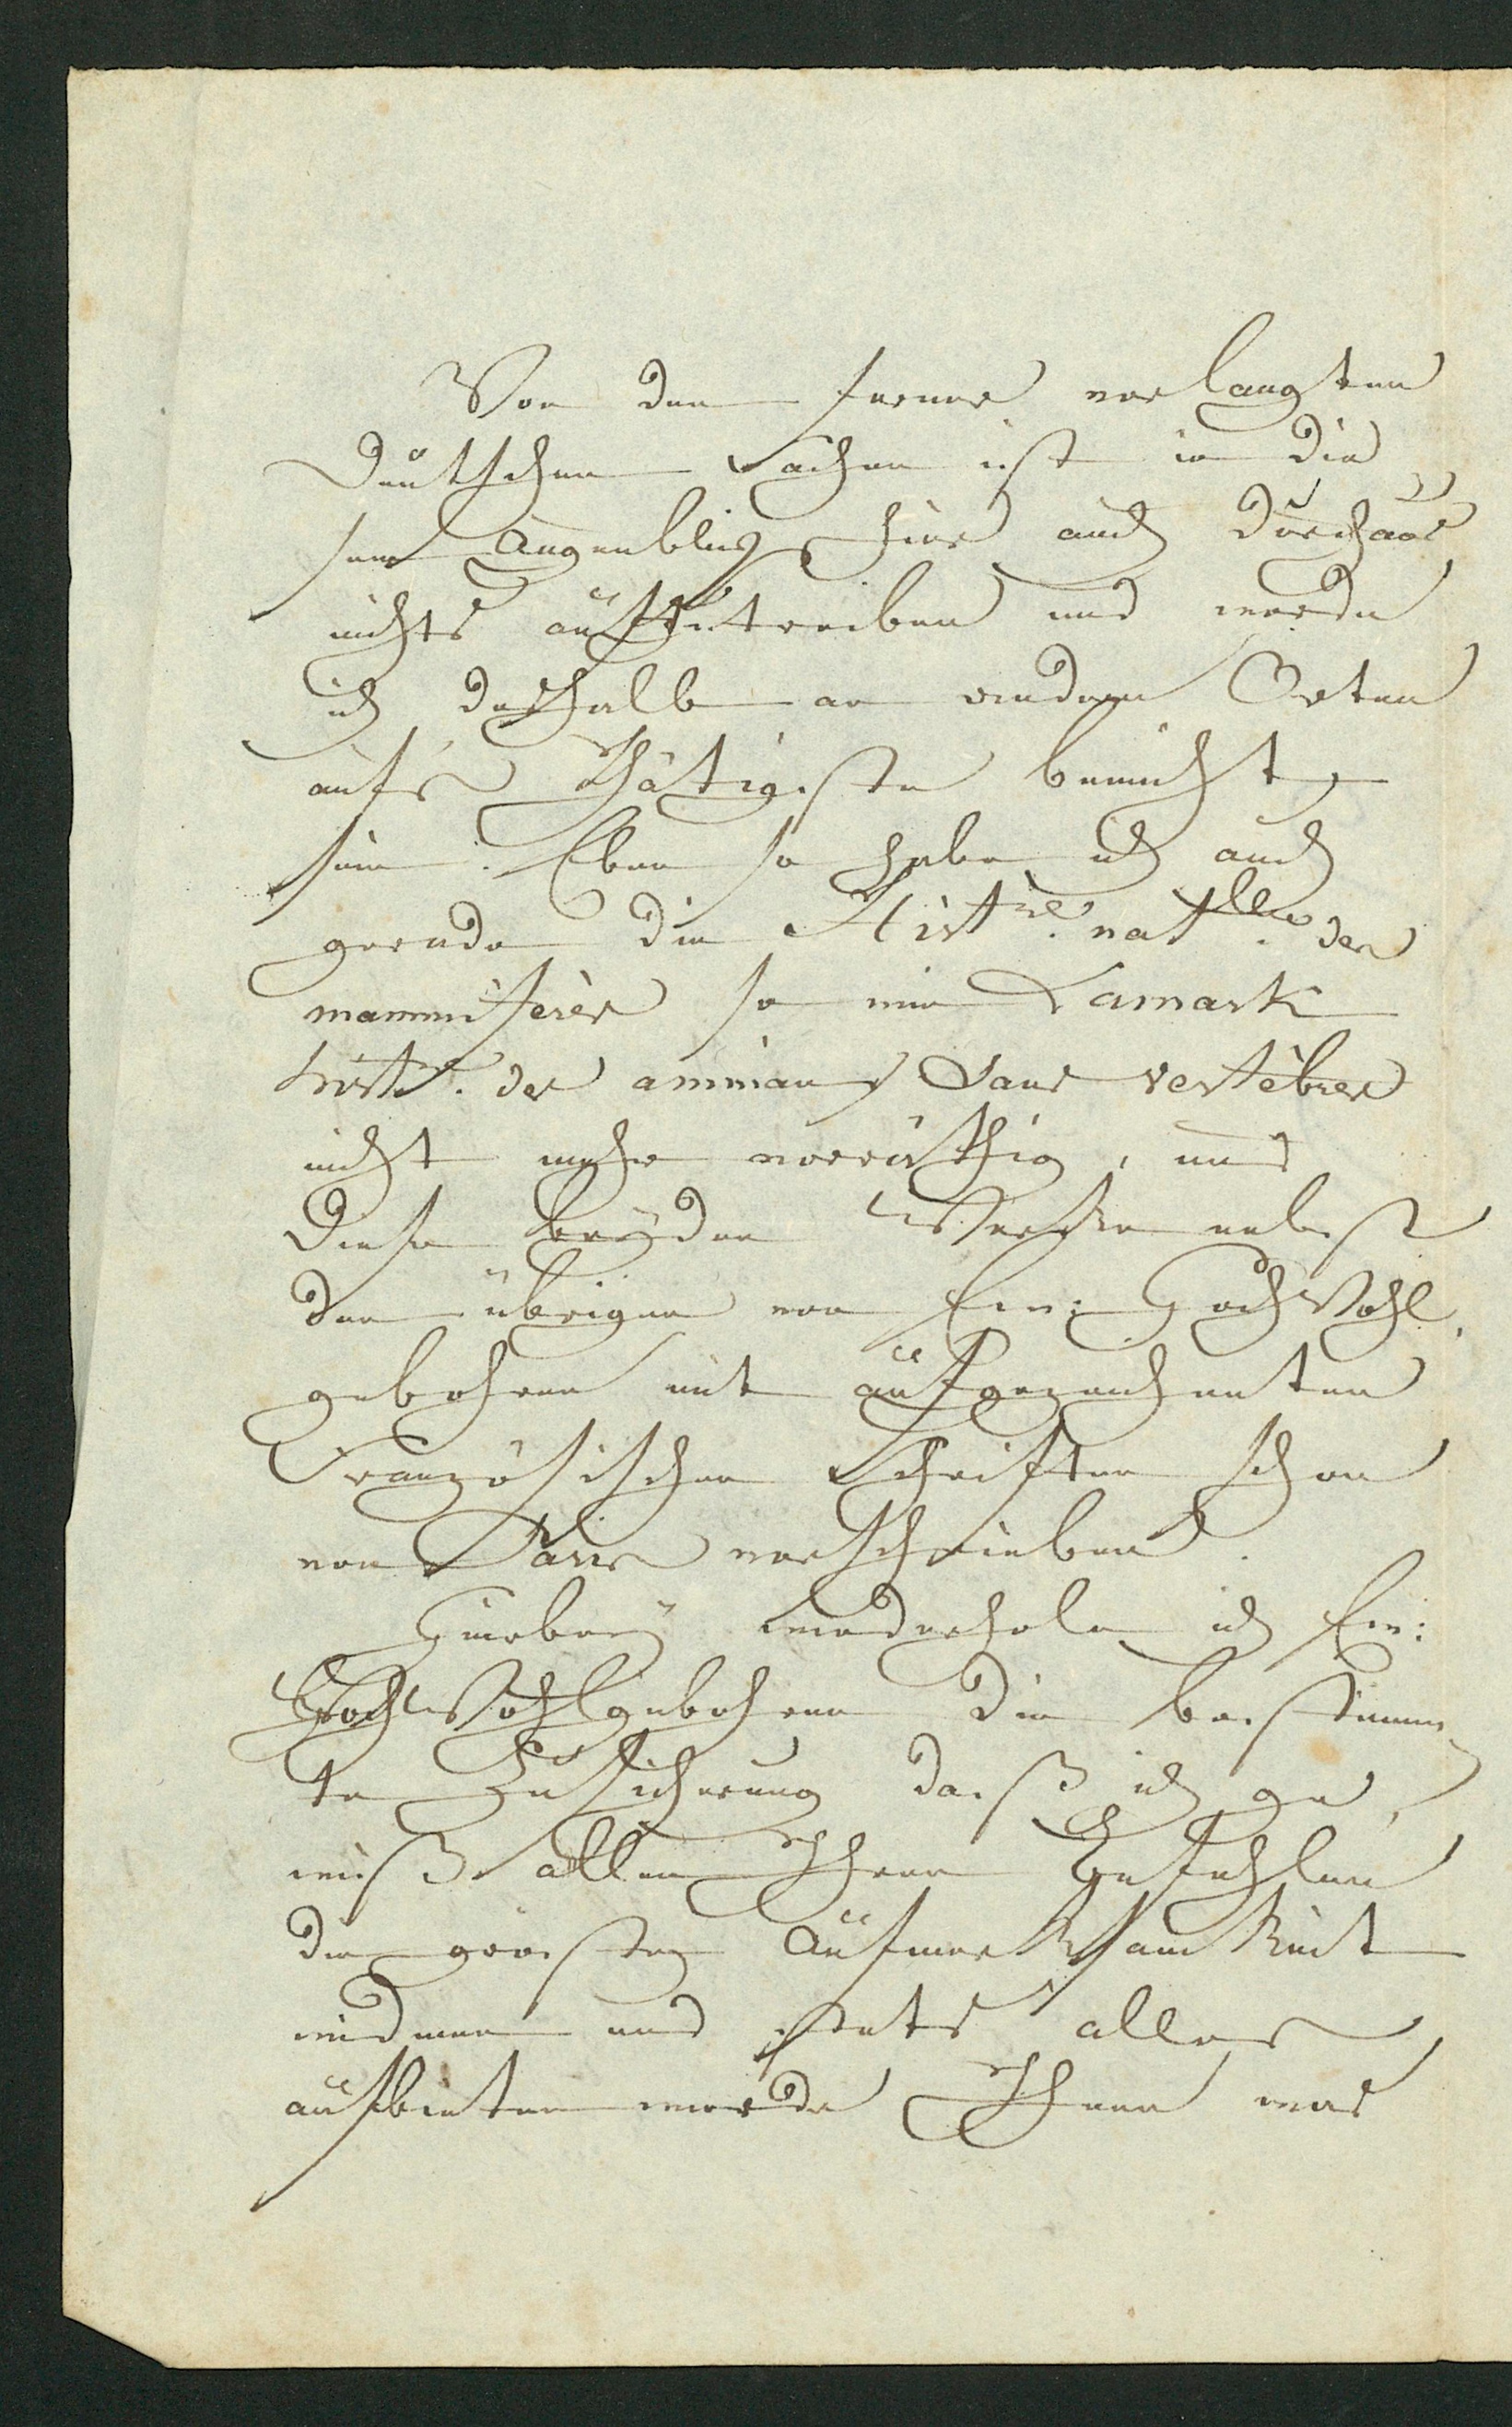 Von den ferner verlangten
deutschen Sachen ist in die
sem Augenblick hier auch durchaus
nichts aufzutreiben und werde
ich deshalb an anderen Orten
aufs thätigste bemüht
sein. Eben so habe ich auch
gerade die Hist.re nat.lle des
mammiferès so wie Lamark
hist.re des animaux sans vertèbres
nicht mehr vorräthig, und
diese beyden Werke nebst
den übrigen von Ew: HochWohl
gebohren mit aufgezeichneten
Französischen Schriften schon
von Paris verschrieben.
Hierbey wiederhole ich Ew:
HochWohlgebohren die bestimm
te Zusicherung daß ich ge
wiß allen Ihren Befehlen
die gröste Aufmerksamkeit
widmen und stets alles
aufbieten werde Ihnen was